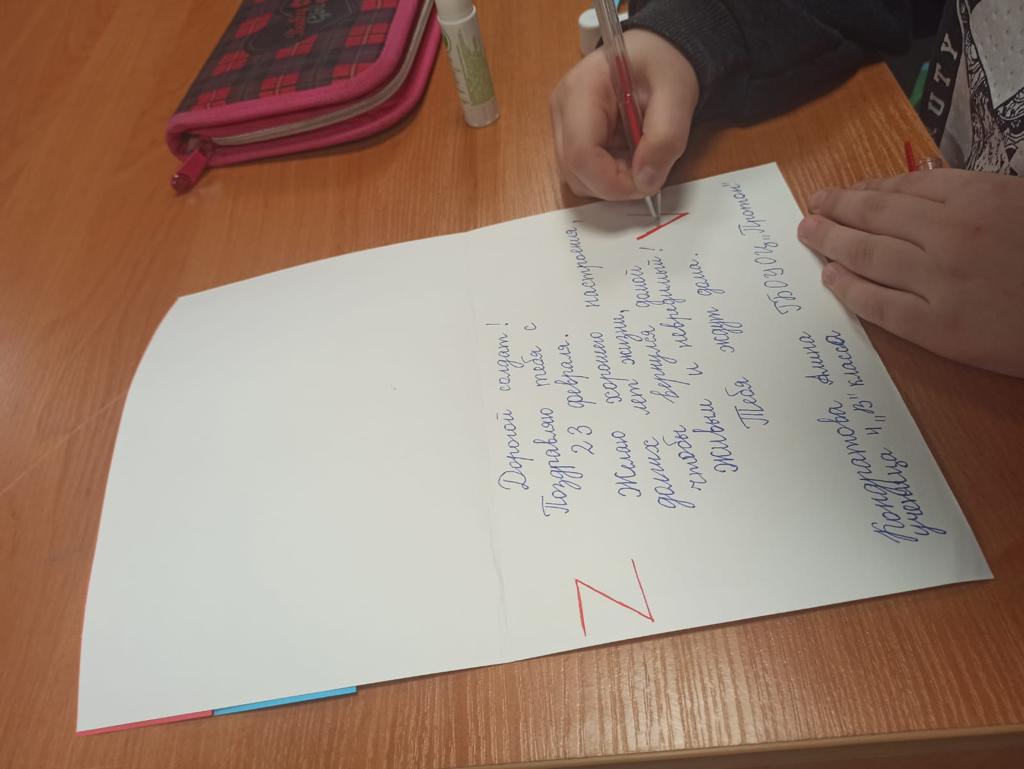 Дорогой солдат!
Поздравляю тебя с
23 февраля.
Желаю хорошего настроения,
долгих лет жизни,
чтобы вернулся домой
живым и невредимый!
Тебя ждут дома.
Кондратова Алина ГБОУОЦ„Протон"
ученица 4„В" класса
Z
V
UTY